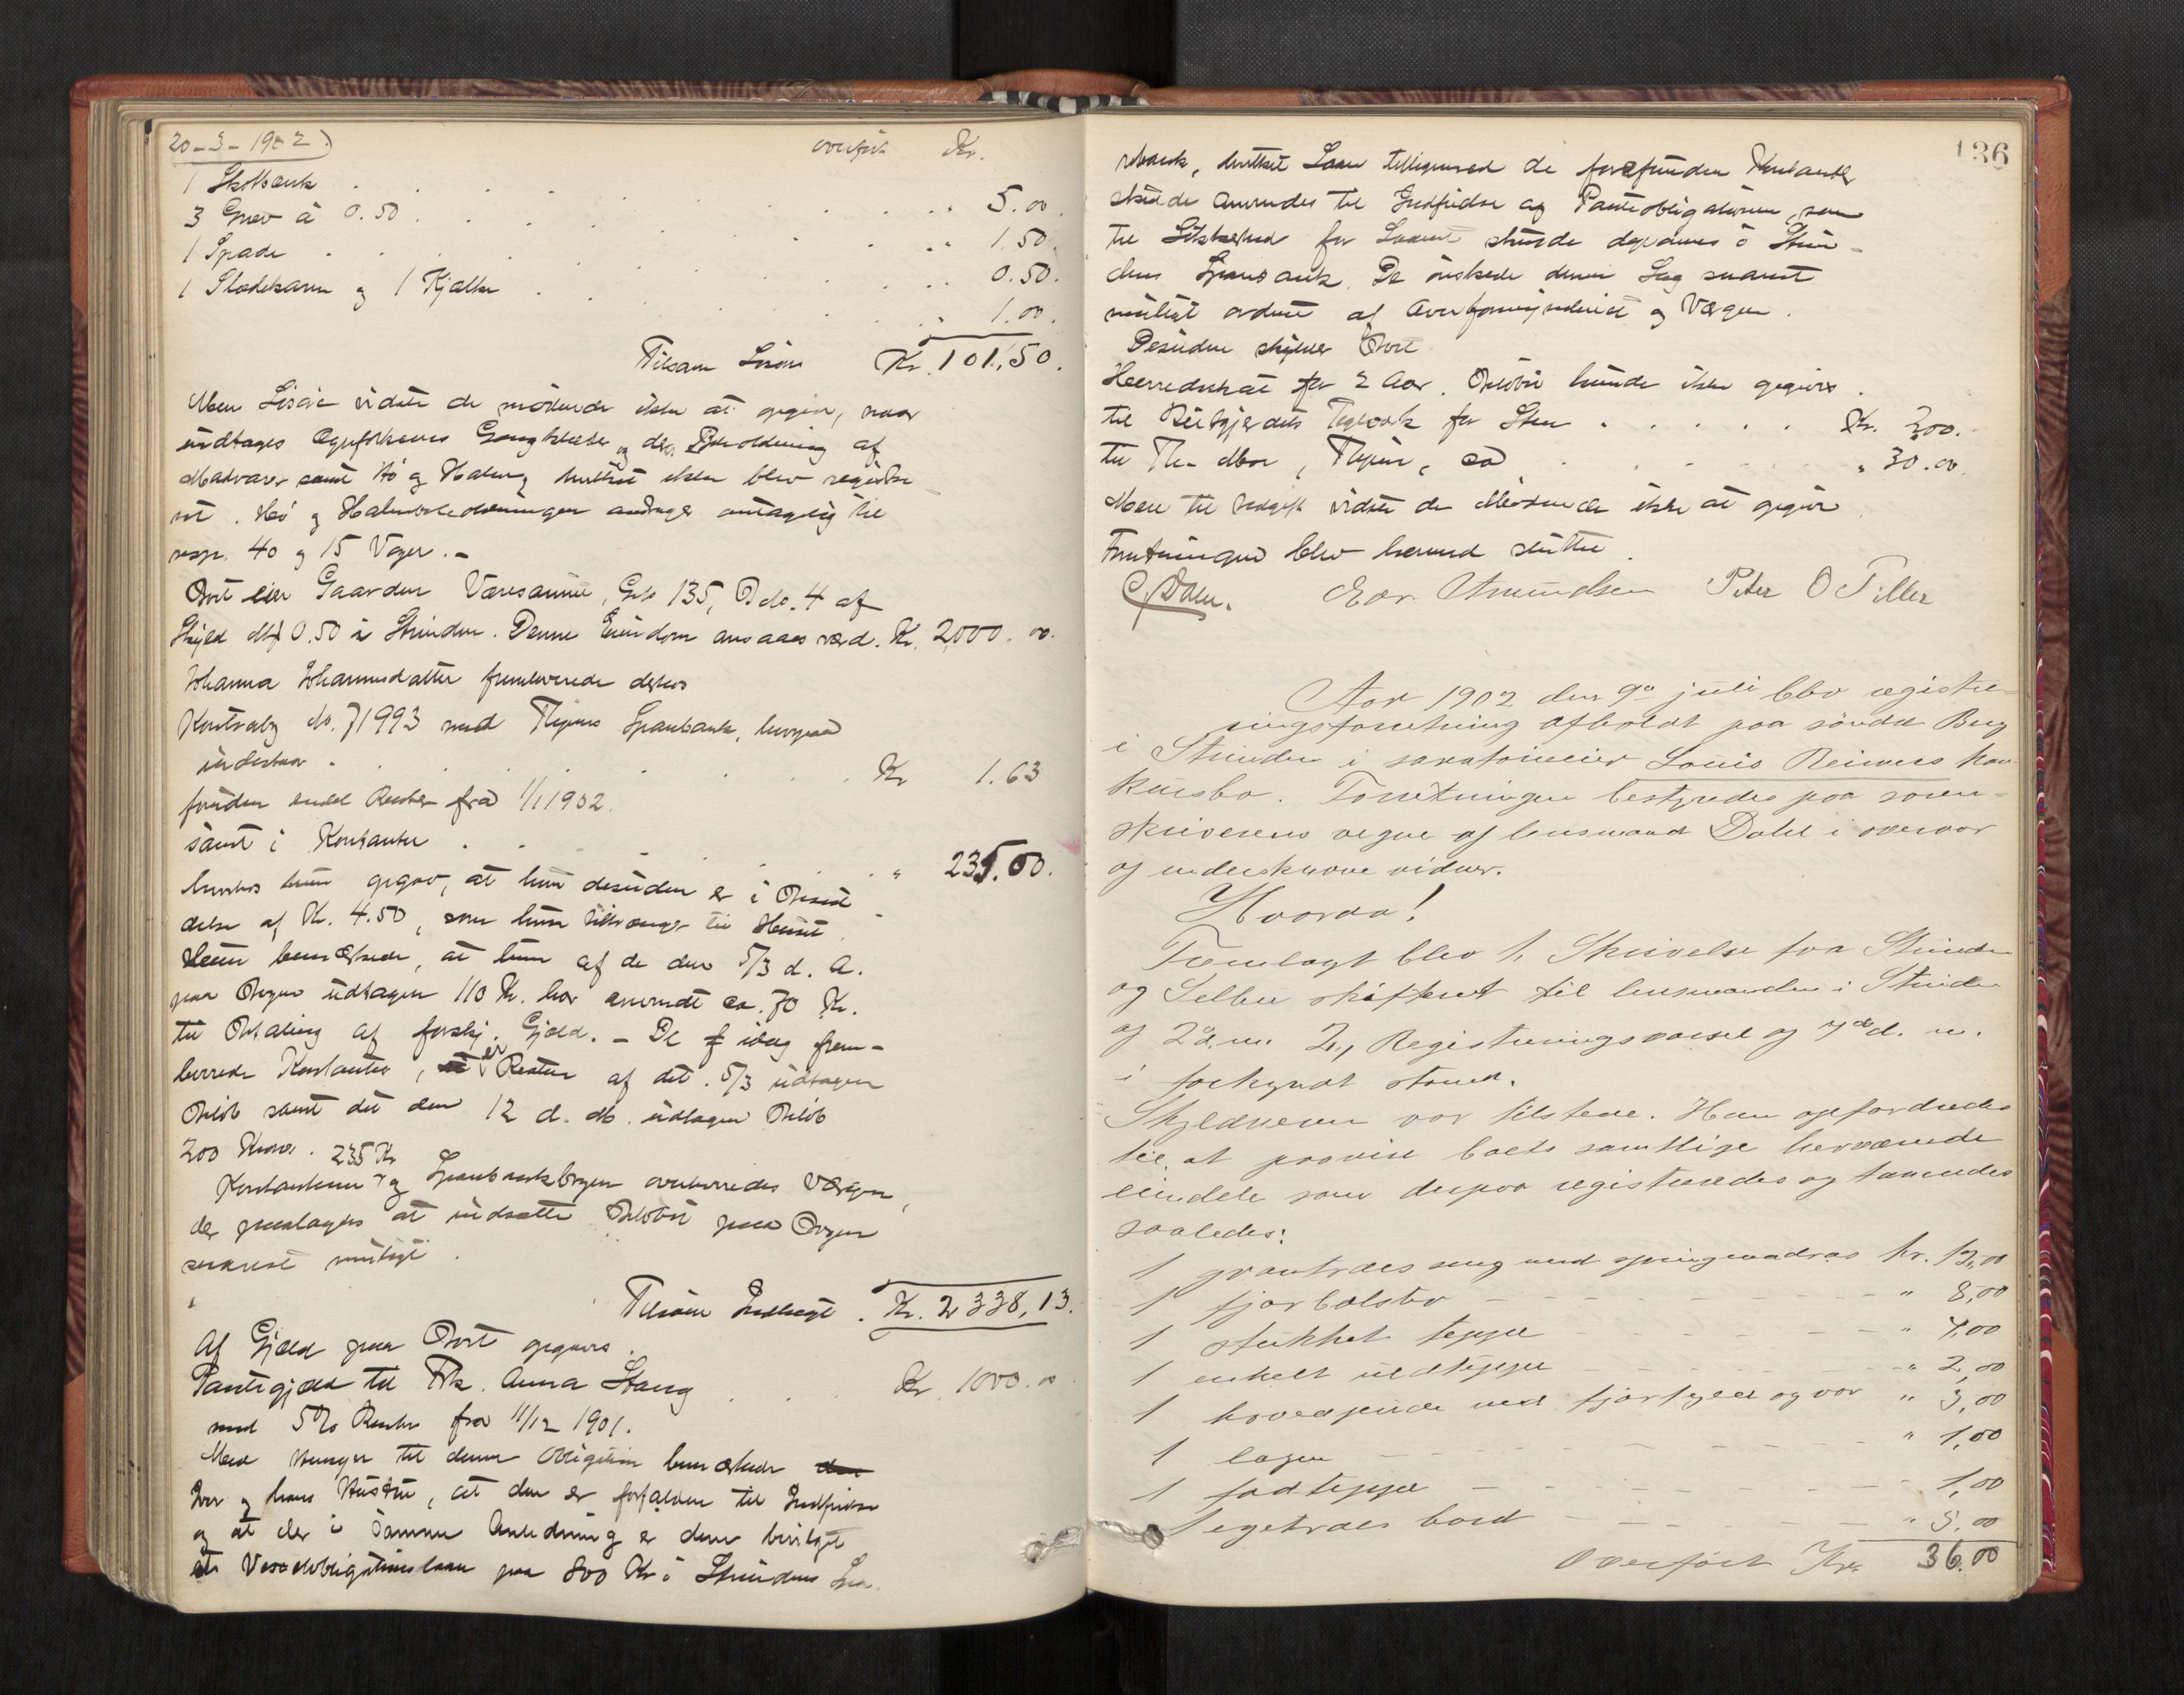 20-3-1902.)
overført Kr.
1 Skotbænk
5.00.
3 Grev à 0.50
1.50.
1 Spade
0.50.
1 Slædekarm og 1 Kjælke
1.00.
Tilsam Løsøre Kr. 101,50.
Mere Løsøre vidste de mødende ikke at opgive, naar
undtages Gangklæder og Beholdning af
Madvarer samt Hø og Halm, hvilket ikke blev registre
ret. Hø og Halmbeholdningen andrager antagelig til
resp. 40 og 15 Voger.-
Boet eier Gaarden Gno 135, Bno. 4 af
Skyld Mk 0.50 i Strinden. Denne Eiendom ansaaes værd. Kr. 2,000.00.
Johanna Johannesdatter fremleverede derhos
Kontrabog No. 71993 med Thjems Sparebank, hvorpaa
indestaar Kr 1.63
foruden endel Renter fra 1/1 1902.
samt i Kontanter " 235.00.
hvorhos hun opgav, at hun desuden er i Besid
delse af Kr. 4.50, som hun tiltrænger til Huset.
Hun bemærkede, at hun af de den 5/3 d. A.
paa Bogen udtagne 110 Kr. har anvendt ca. 70 Kr.
til Betaling af forskj. Gjæld. - De idag frem-
leverede Kontanter, er Resten af det 5/3 udtagne
Beløb samt det den 12 d. M. udtagne Beløb
200 Kroner.
235 Kr
Kontanterne og Sparebankbogen overleveredes Værgen,
der paalagdes at indsætte Beløbet paa Bogen
snarest muligt.
Tilsam Indtægt. Kr. 2338,13.
Af Gjæld paa Boet opgaves.
Pantegjæld til Frk. Anna Stang Kr. 1000.00
med 5% Rente fra 11/12 1901.
Med Hensyn til denne Obligation bemærkede
og hans Hustru, at den er forfalden til Indfrielse
og at der i samme Anledning er dem bevilget
et Vexelobligationslaan paa 800 Kr i Strindens Spa
136
rebank, hvilket Laan tilligemed de forefundne Kontanter
skulde anvendes til Indfrielse af Panteobligationen, som
til Sikkerhed for Laanet skulde deponeres i Strin-
dens Sparebank. De ønskede denne Sag snarest
muligt ordnet af Overformynderiet og Værgen.
Desuden skylder Boet
Herredsskat for 2 Aar. Beløbet kunde ikke opgives.
til Teglverk for Sten Kr. 200.
til Th. Moe, Thjem, ca " 30.00.
Mere til Udgift vidste de Mødende ikke at opgive
Forretningen blev hermed sluttet.
C. Dahl. Edv. Amundsen Peter O Tiller
Aar 1902 den 9de juli blev registre-
ringsforretning afholdt paa søndre Berg
i Strinden i sanatorieeier Louis Reimers kon
kursbo. Forretningen bestyredes paa soren-
skriverens vegne af lensmand Dahl i overvær
af underskrevne vidner.
Hvorda!
Fremlagt blev 1, Skrivelse fra Strinden
og Selbu skifteret til lensmanden i Strinden
af 2 d. m. 2, Registreringsvarsel af 7de d. m.
i forkyndt stand.
Skyldneren var tilstede. Han opfordredes
til at paavise boets samtlige herværende
eiendele som derpaa registreredes og taxeredes
saaledes:
1 grantræes seng med springmadras kr. 12,00
1 fjærbolster " 8,00
1 stukket teppe " 4,00
1 enkelt uldteppe " 2,00
1 hovedpude med fjærfyld og var " 3,00
1 lagen " 1,00
1 fodteppe 1,00
1 egetræes bord " 5,00
Overført Kr. 36.00